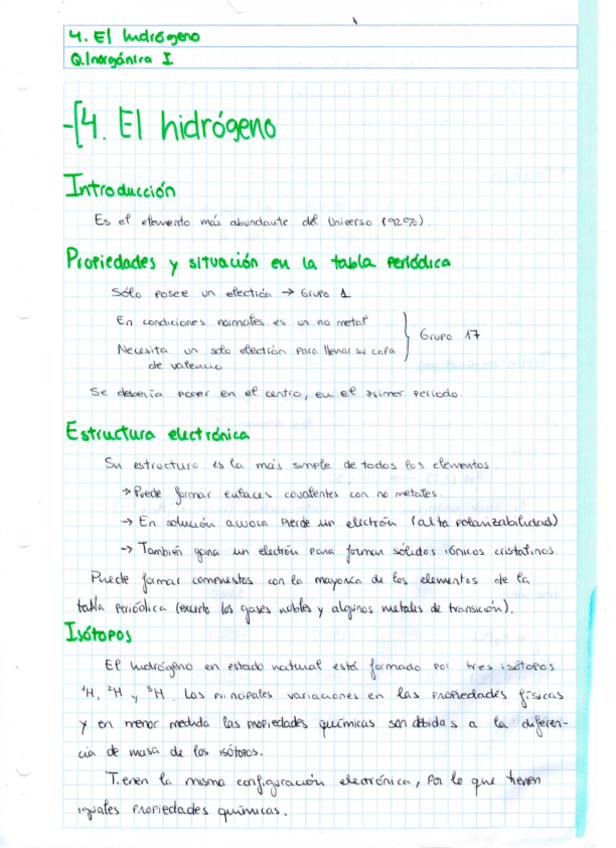 4. El hidrógeno
Q.Inorgánica I
4. El hidrógeno
Introducción
Es el elemento más abundante del Universo (92%).
Propiedades y situación en la tabla periódica
Sólo posee un electrón → Grupo 1
En condiciones normales es un no metal
Necesita un solo electrón para llenar su capa
de valencia
Grupo 17
Se debería poner en el centro, en el primer periodo.
Estructura electrónica
Su estructura es la más simple de todos los elementos.
→ Puede formar enlaces covalentes con no metales.
→ En solución acuosa pierde un electrón (alta polarizabilidad)
→ También gana un electrón para formar sólidos iónicos cristalinos.
Puede formar compuestos con la mayoría de los elementos de la
tabla periódica (excepto los gases nobles y algunos metales de transición).
Isótopos
El hidrógeno en estado natural está formado por tres isótopos
¹H, ²H y ³H. Las principales variaciones en las propiedades físicas
y en menor medida las propiedades químicas son debidas a la diferen-
cia de masa de los isótopos.
Tienen la misma configuración electrónica, por lo que tienen
iguales propiedades químicas.